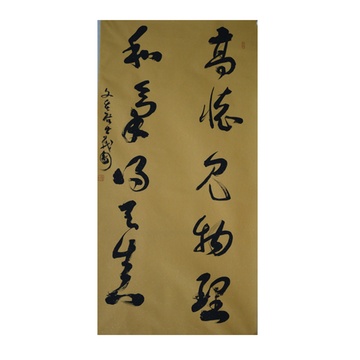 高怀见物理
和气得天真